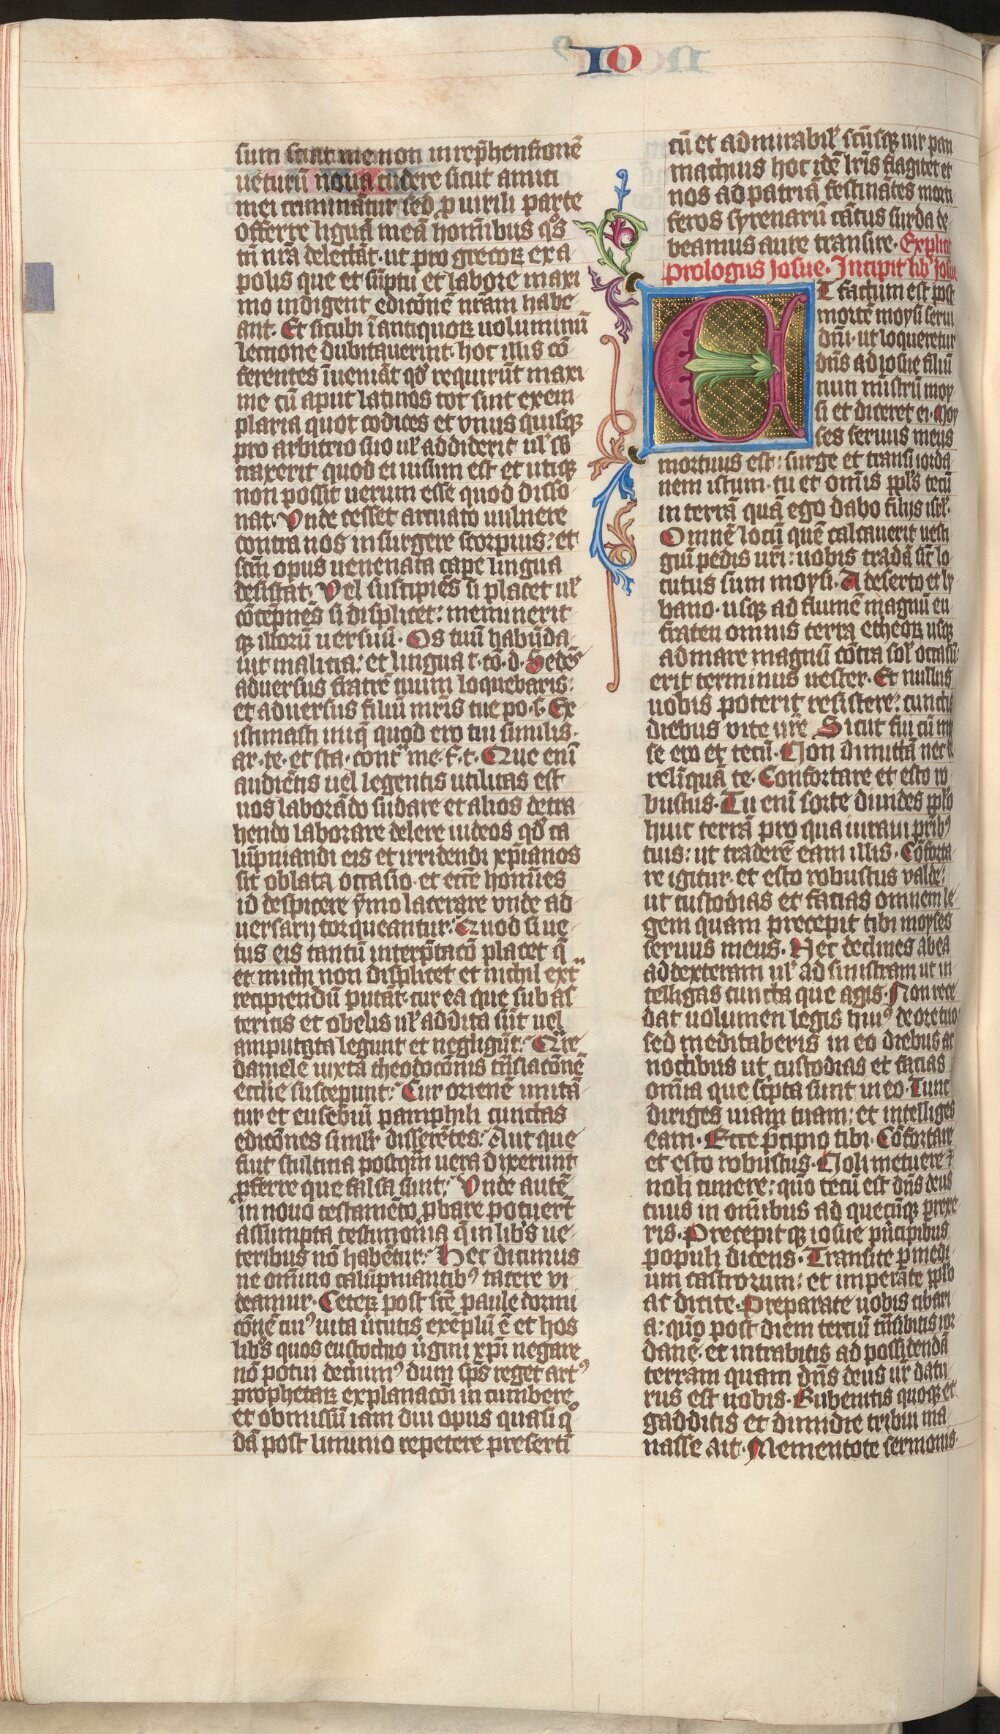 IO
sum sciat me non in rep̄hensionē
uet̾um noua cudere sicut amici
mei criminātur sed p uirili parte
offerre liguā meā homībus qͦs
in nrā delectāt· ut pro grecoꝝ exa
polis que et sūptu et labore maxi
mo indigent edicōnē nrām habe
ant· Et sicubi ī antiquoꝝ uoluminū
lectione dubitauerint· hoc illis cō
ferentes īueniāt qͦd requirūt maxi
me cū aput latinos tot sint exem
plaria quot codices et vnus quisqꝫ
pro arbitrio suo ul̾ addiderit ul̾ sb̾
traxerit quod ei uisum est et utiqꝫ
non possit uerum esse quod disso
nat· Vnde cesset arcuato uulnere
contra nos insurgere scorpius: et
scm̄ opus uenenata cape lingua
desistat· Vel suscipiēs si placet ul̾
cōtēpnēs si displicet: meminerit
qꝫ illorū uersuū· Os tuū habūda
uit malicia: et lingua t· cō· d· Sedēs
aduersus fratrē tuum loquebaris:
et aduersus filiū mr̄is tue po· s· Ex
istimasti iniq̄ quod ero tui similis·
ar· te· et sta· cont̾ me· f· t· Que enī
audiētis uel legentis utilitas est
uos laborādo sudare et alios detra
hendo laborare delere iudeos qͦd ca
lūpniandi eis et irridendi xp̄ianos
sit oblata occasio· et ecc̄e homīes
id despicere ȳmo lacerare vnde ad
uersarij torqueantur: Quod si ue
tus eis tantū interp̄tacō placet q̄
et michi non displicet et nichil ext̾
recipiendū putāt· cur ea que sub as
teritis et obelis ul̾ addita sūt uel
amputata legunt et negligūt: Cure
danielē iuxta theodoconis trāslaconē
ecclie suscepunt: Cur orienē mirā
tur et eusebiū pamphili cunctas
edicōnes simil̾r disserētes: Aut que
fuit stulticia postqm̄ uera dixerunt
pferre que falsa sunt: Vnde autē
in nouo testamēto pbare potuer̄t
assumpta testimonia q̄ in lib̾s ue
teribus nō habētur: Hec dicimus
ne omīno calūpniantibꝰ tacere vi
deamur· Ceteꝝ post scē paule dormi
cōnē cuiꝰ uita ūtutis exēplū ē et hos
lib̾s quos eustochio ūgini xp̄i negare
nō potui decrimꝰ dum sp̄s reget artꝰ
prophetaꝝ explanacōi incumbere
et obmissū iam diu opus quasi qͦ
dā post liminio repetere preserti
cū et admirabil̾ sc̄usqꝫ uir pan
machius hoc idē lr̄is flagitet et
nos ad patriā festinātes morti
feros syrenarū cātus surda de
beamus aure transire· Explicit
prologus iosue· Incipit lib̾ iosue
Et factum est post
mortē moysi serui
dn̄i· ut loqueretur
dn̄s ad iosue filiū
nun mīstrū moy
si et diceret ei· Moy
ses seruus meus
mortuus est: surge et transi iorda
nem istum· tu et omīs ppl̄s tecū
in terrā quā ego dabo filijs isrl̾·
Omnē locū quē calcauerit uesti
giū pedis uri: uobis tradā sic̄ lo
cutus sum moysi· A deserto et ly
bano· usqꝫ ad flumē magnū eu
fraten omnis terra etheoꝝ usqꝫ
ad mare magnū cōtra sol̾ occasū
erit terminus uester· Et nullus
uobis poterit resistere: cunctis
diebus vite ure· Sicut fui cū moy
se ero et tecū· Non dimittā nec
relīquā te· Confortare et esto ro
bustus· Tu enī sorte diuides pplo
huic terrā pro qua iuraui pribꝰ
tuis: ut traderē eam illis· Cōforta
re igitur· et esto robustus valde:
ut custodias et facias omnem le
gem quam precepit tibi moyses
seruus meus· Nec declines ab ea
ad dexteram ul̾ ad sinistram ut in
telligas cuncta que agis· Non rece
dat uolumen legis huiꝰ de ore tuo:
sed meditaberis in eo diebus ac
noctibus ut custodias et facias
omīa que sc̄pta sunt in eo· Tunc
diriges uiam tuam: et intelliges
eam· Ecce p̄cipio tibi· Cōfortare
et esto robustus· Noli metuere ⁊
noli timere: quō tecū est dn̄s deus
tuus in omībus ad quecūqꝫ prexe
ris· Precepitqꝫ iosue p̄ncipibus
populi dicens· Transite p medi
um castrorum: et imperate pplo
ac dicite· Preparate uobis cibari
a: quō post diem terciū trāsibitis ior
danē· et intrabitis ad possidendā
terram quam dn̄s deus ur̄ datu
rus est uobis· Rubenitis quoqꝫ et
gadditis et dimidie tribui ma
nasse ait· Mementote sermonis·